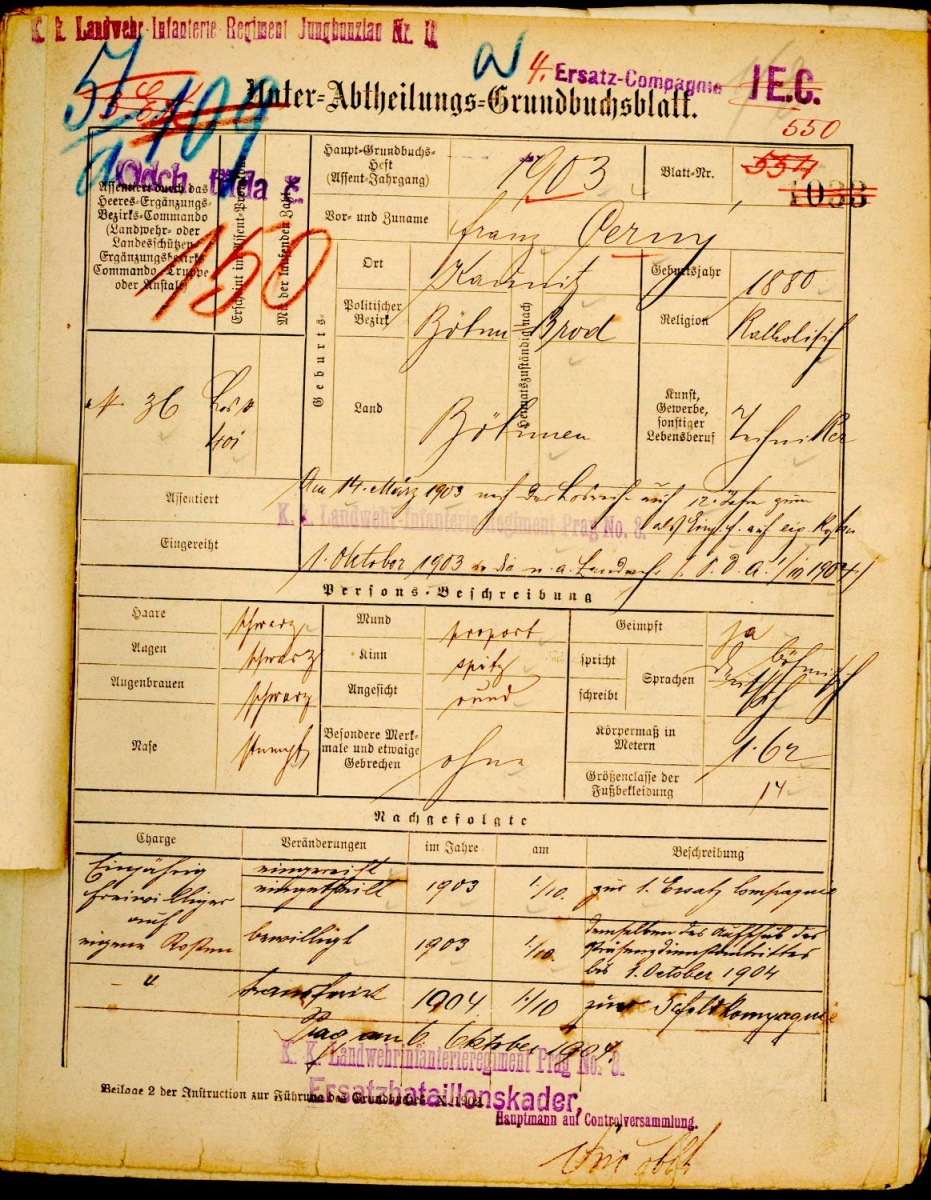 K. k. Landwehr-Infanterie-Regiment Jungbunzlau Nr.
4. Ersatz-Compagnie
1 E.C.
57
109
a
Unter-Abtheilungs-Grundbuchsblatt.
550
554
1033
Haupt-Grundbuchs-
Heft
(Assent-Jahrgang)
1903
Blatt-Nr.
Assentiert durch das
Heeres-Ergänzungs-
Bezirks-Commando
(Landwehr- oder
Landesschützen-
Ergänzungsbezirks-
Commando, Truppe
oder Anstalt)
Erscheint im Assent-Protokoll
Mit der laufenden Zahl
150
Vor- und Zuname
Franz Černý
Geburts-
Ort
Kaunitz
Geburtsjahr
1880
Politischer
Bezirk
Böhm-Brod
Heimatszuständig nach
Religion
Katholisch
Land
Böhmen
Kunst,
Gewerbe,
sonstiger
Lebensberuf
Techniker
36
Assentiert
Am 14. März 1903 nach der Losreihe auf 12 Jahre zum
K. k. Landwehr-Infanterie-Regiment Prag No. 8.
Eingereiht
1. Oktober 1903
1904
Persons-Beschreibung
Haare
schwarz
Mund
proport
Geimpft
ja
Augen
schwarz
Kinn
spitz
spricht
schreibt
Sprachen
böhmisch
deutsch
Augenbrauen
schwarz
Angesicht
rund
Nase
stumpf
Besondere Merk-
male und etwaige
Gebrechen
ohne
Körpermaß in
Metern
1·62
Größenclasse der
Fußbekleidung
14
Nachgefolgte
Charge
Veränderungen
im Jahre
am
Beschreibung
Einjährig
freiwilliger
auf
eigene Kosten
eingereiht
eingetheilt
1903
1/10.
zur 1. Ersatz Compagnie
bewilligt
1903
1/10.
demselben der Aufschub des
Präsenzdienstantrittes
bis 1. October 1904
"
transferirt
1904
1/10
zur Feldkompagnie
Prag am 6. Oktober 1904.
K. K. Landwehrinfanterieregiment Prag No. 8.
Ersatzbataillonskader,
Beilage 2 der Instruction zur Führung des Grundbuches X. 1902.
Hauptmann auf Controlversammlung.